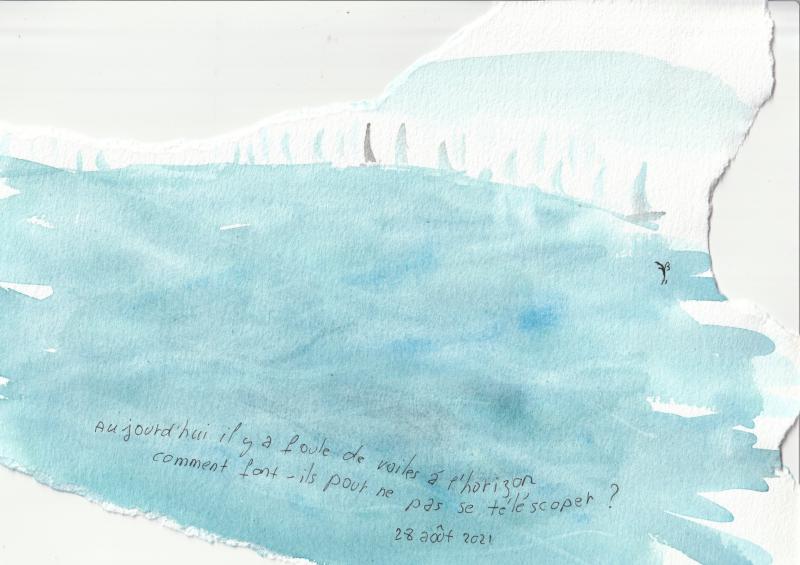 Aujourd'hui il y a foule de voiles à l'horizon
comment font-ils pour ne pas se téléscoper ?
28 août 2021